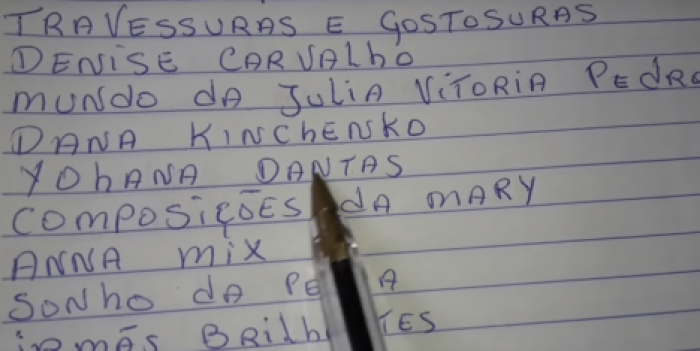 TRAVESSURAS E GOSTOSURAS
DENISE CARVALhO
MUNDO DA JULIA VITORIA
DANA KINChENKO
YOhANA DANTAS
COMPOSIÇÕES DA MARY
ANNA MIX
SONHO DA
IRMÃS